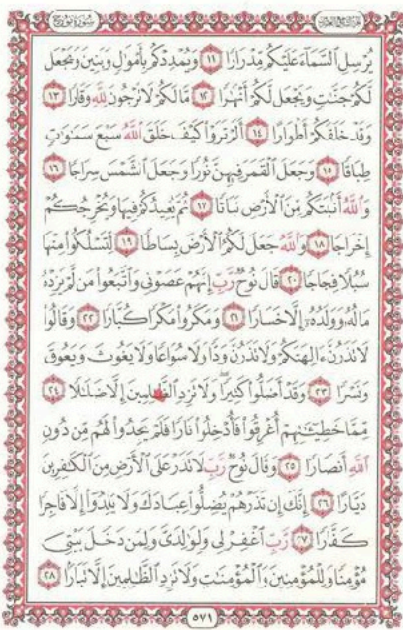 سورة نوح
الجزء التاسع والعشرون
يُرْسِلِ ٱلسَّمَآءَ عَلَيْكُم مِّدْرَارًا ١١ وَيُمْدِدْكُم بِأَمْوَٰلٍ وَبَنِينَ وَيَجْعَل
لَّكُمْ جَنَّٰتٍ وَيَجْعَل لَّكُمْ أَنْهَٰرًا ١٢ مَّا لَكُمْ لَا تَرْجُونَ لِلَّهِ وَقَارًا ١٣
وَقَدْ خَلَقَكُمْ أَطْوَارًا ١٤ أَلَمْ تَرَوْا۟ كَيْفَ خَلَقَ ٱللَّهُ سَبْعَ سَمَٰوَٰتٍ
طِبَاقًا ١٥ وَجَعَلَ ٱلْقَمَرَ فِيهِنَّ نُورًا وَجَعَلَ ٱلشَّمْسَ سِرَاجًا ١٦
وَٱللَّهُ أَنۢبَتَكُم مِّنَ ٱلْأَرْضِ نَبَاتًا ١٧ ثُمَّ يُعِيدُكُمْ فِيهَا وَيُخْرِجُكُمْ
إِخْرَاجًا ١٨ وَٱللَّهُ جَعَلَ لَكُمُ ٱلْأَرْضَ بِسَاطًا ١٩ لِّتَسْلُكُوا۟ مِنْهَا
سُبُلًا فِجَاجًا ٢٠ قَالَ نُوحٌ رَّبِّ إِنَّهُمْ عَصَوْنِى وَٱتَّبَعُوا۟ مَن لَّمْ يَزِدْهُ
مَالُهُۥ وَوَلَدُهُۥٓ إِلَّا خَسَارًا ٢١ وَمَكَرُوا۟ مَكْرًا كُبَّارًا ٢٢ وَقَالُوا۟
لَا تَذَرُنَّ ءَالِهَتَكُمْ وَلَا تَذَرُنَّ وَدًّا وَلَا سُوَاعًا وَلَا يَغُوثَ وَيَعُوقَ
وَنَسْرًا ٢٣ وَقَدْ أَضَلُّوا۟ كَثِيرًا وَلَا تَزِدِ ٱلظَّٰلِمِينَ إِلَّا ضَلَٰلًا ٢٤
مِّمَّا خَطِيٓـَٰٔتِهِمْ أُغْرِقُوا۟ فَأُدْخِلُوا۟ نَارًا فَلَمْ يَجِدُوا۟ لَهُم مِّن دُونِ
ٱللَّهِ أَنصَارًا ٢٥ وَقَالَ نُوحٌ رَّبِّ لَا تَذَرْ عَلَى ٱلْأَرْضِ مِنَ ٱلْكَٰفِرِينَ
دَيَّارًا ٢٦ إِنَّكَ إِن تَذَرْهُمْ يُضِلُّوا۟ عِبَادَكَ وَلَا يَلِدُوٓا۟ إِلَّا فَاجِرًا
كَفَّارًا ٢٧ رَّبِّ ٱغْفِرْ لِى وَلِوَٰلِدَىَّ وَلِمَن دَخَلَ بَيْتِىَ
مُؤْمِنًا وَلِلْمُؤْمِنِينَ وَٱلْمُؤْمِنَٰتِ وَلَا تَزِدِ ٱلظَّٰلِمِينَ إِلَّا تَبَارًۢا ٢٨
٥٧١